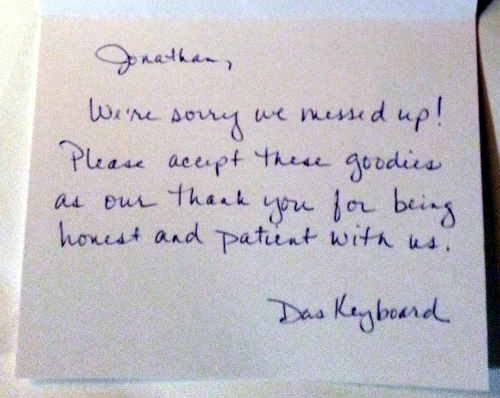 Jonathan,
We're sorry we messed up!
Please accept these goodies
as our thank you for being
honest and patient with us.
Das Keyboard